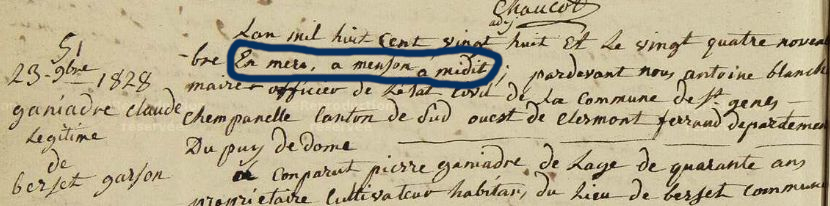 Chaucot
adj
51
23 = 9bre 1828
ganiadre claude
Legitime
de
berset garson
Lan mil huit Cent vingt huit Et Le vingt quatre novem
-bre En mero, a menson a midit, pardevant nous antoine blanch
maire officier de Letat Civil de La Commune de St genes
Champanelle Canton de Sud ouest de Clermont ferrand departemen
Du puy de dome
Conparut pierre ganiadre de Lage de quarante ans
propriétaire Cultivateur habitan, du Lieu de berset Commune